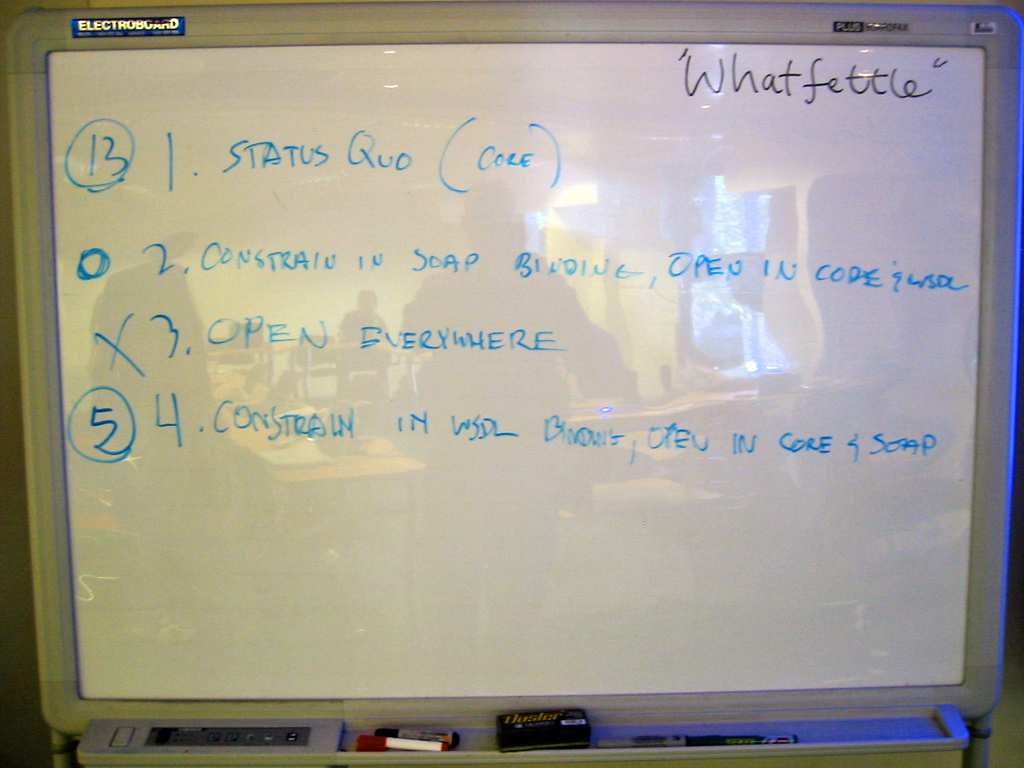 ELECTROBOARD
PLUS BOARDFAX
"Whatfettle"
13 1. STATUS QUO (CORE)
0 2. CONSTRAIN IN SOAP BINDING, OPEN IN CORE & WSDL
X 3. OPEN EVERYWHERE
5 4. CONSTRAIN IN WSDL BINDING, OPEN IN CORE & SOAP
Duster